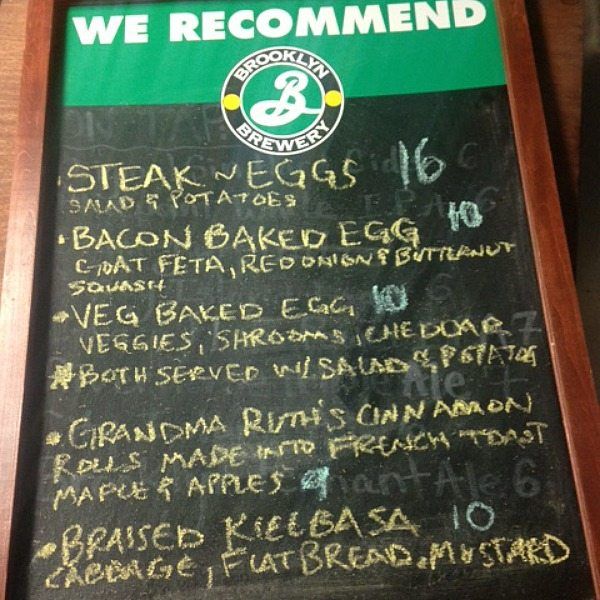 WE RECOMMEND
BROOKLYN
B
BREWERY
• STEAK N EGGS 16
SALAD & POTATOES
• BACON BAKED EGG 10
GOAT FETA, RED ONION & BUTTERNUT
SQUASH
• VEG BAKED EGG 10
VEGGIES, SHROOMS, CHEDDAR
* BOTH SERVED W/ SALAD & POTATOS
• GRANDMA RUTH'S CINNAMON
ROLLS MADE INTO FRENCH TOAST
MAPLE & APPLES 9
• BRAISED KIELBASA 10
CABBAGE, FLATBREAD, MUSTARD